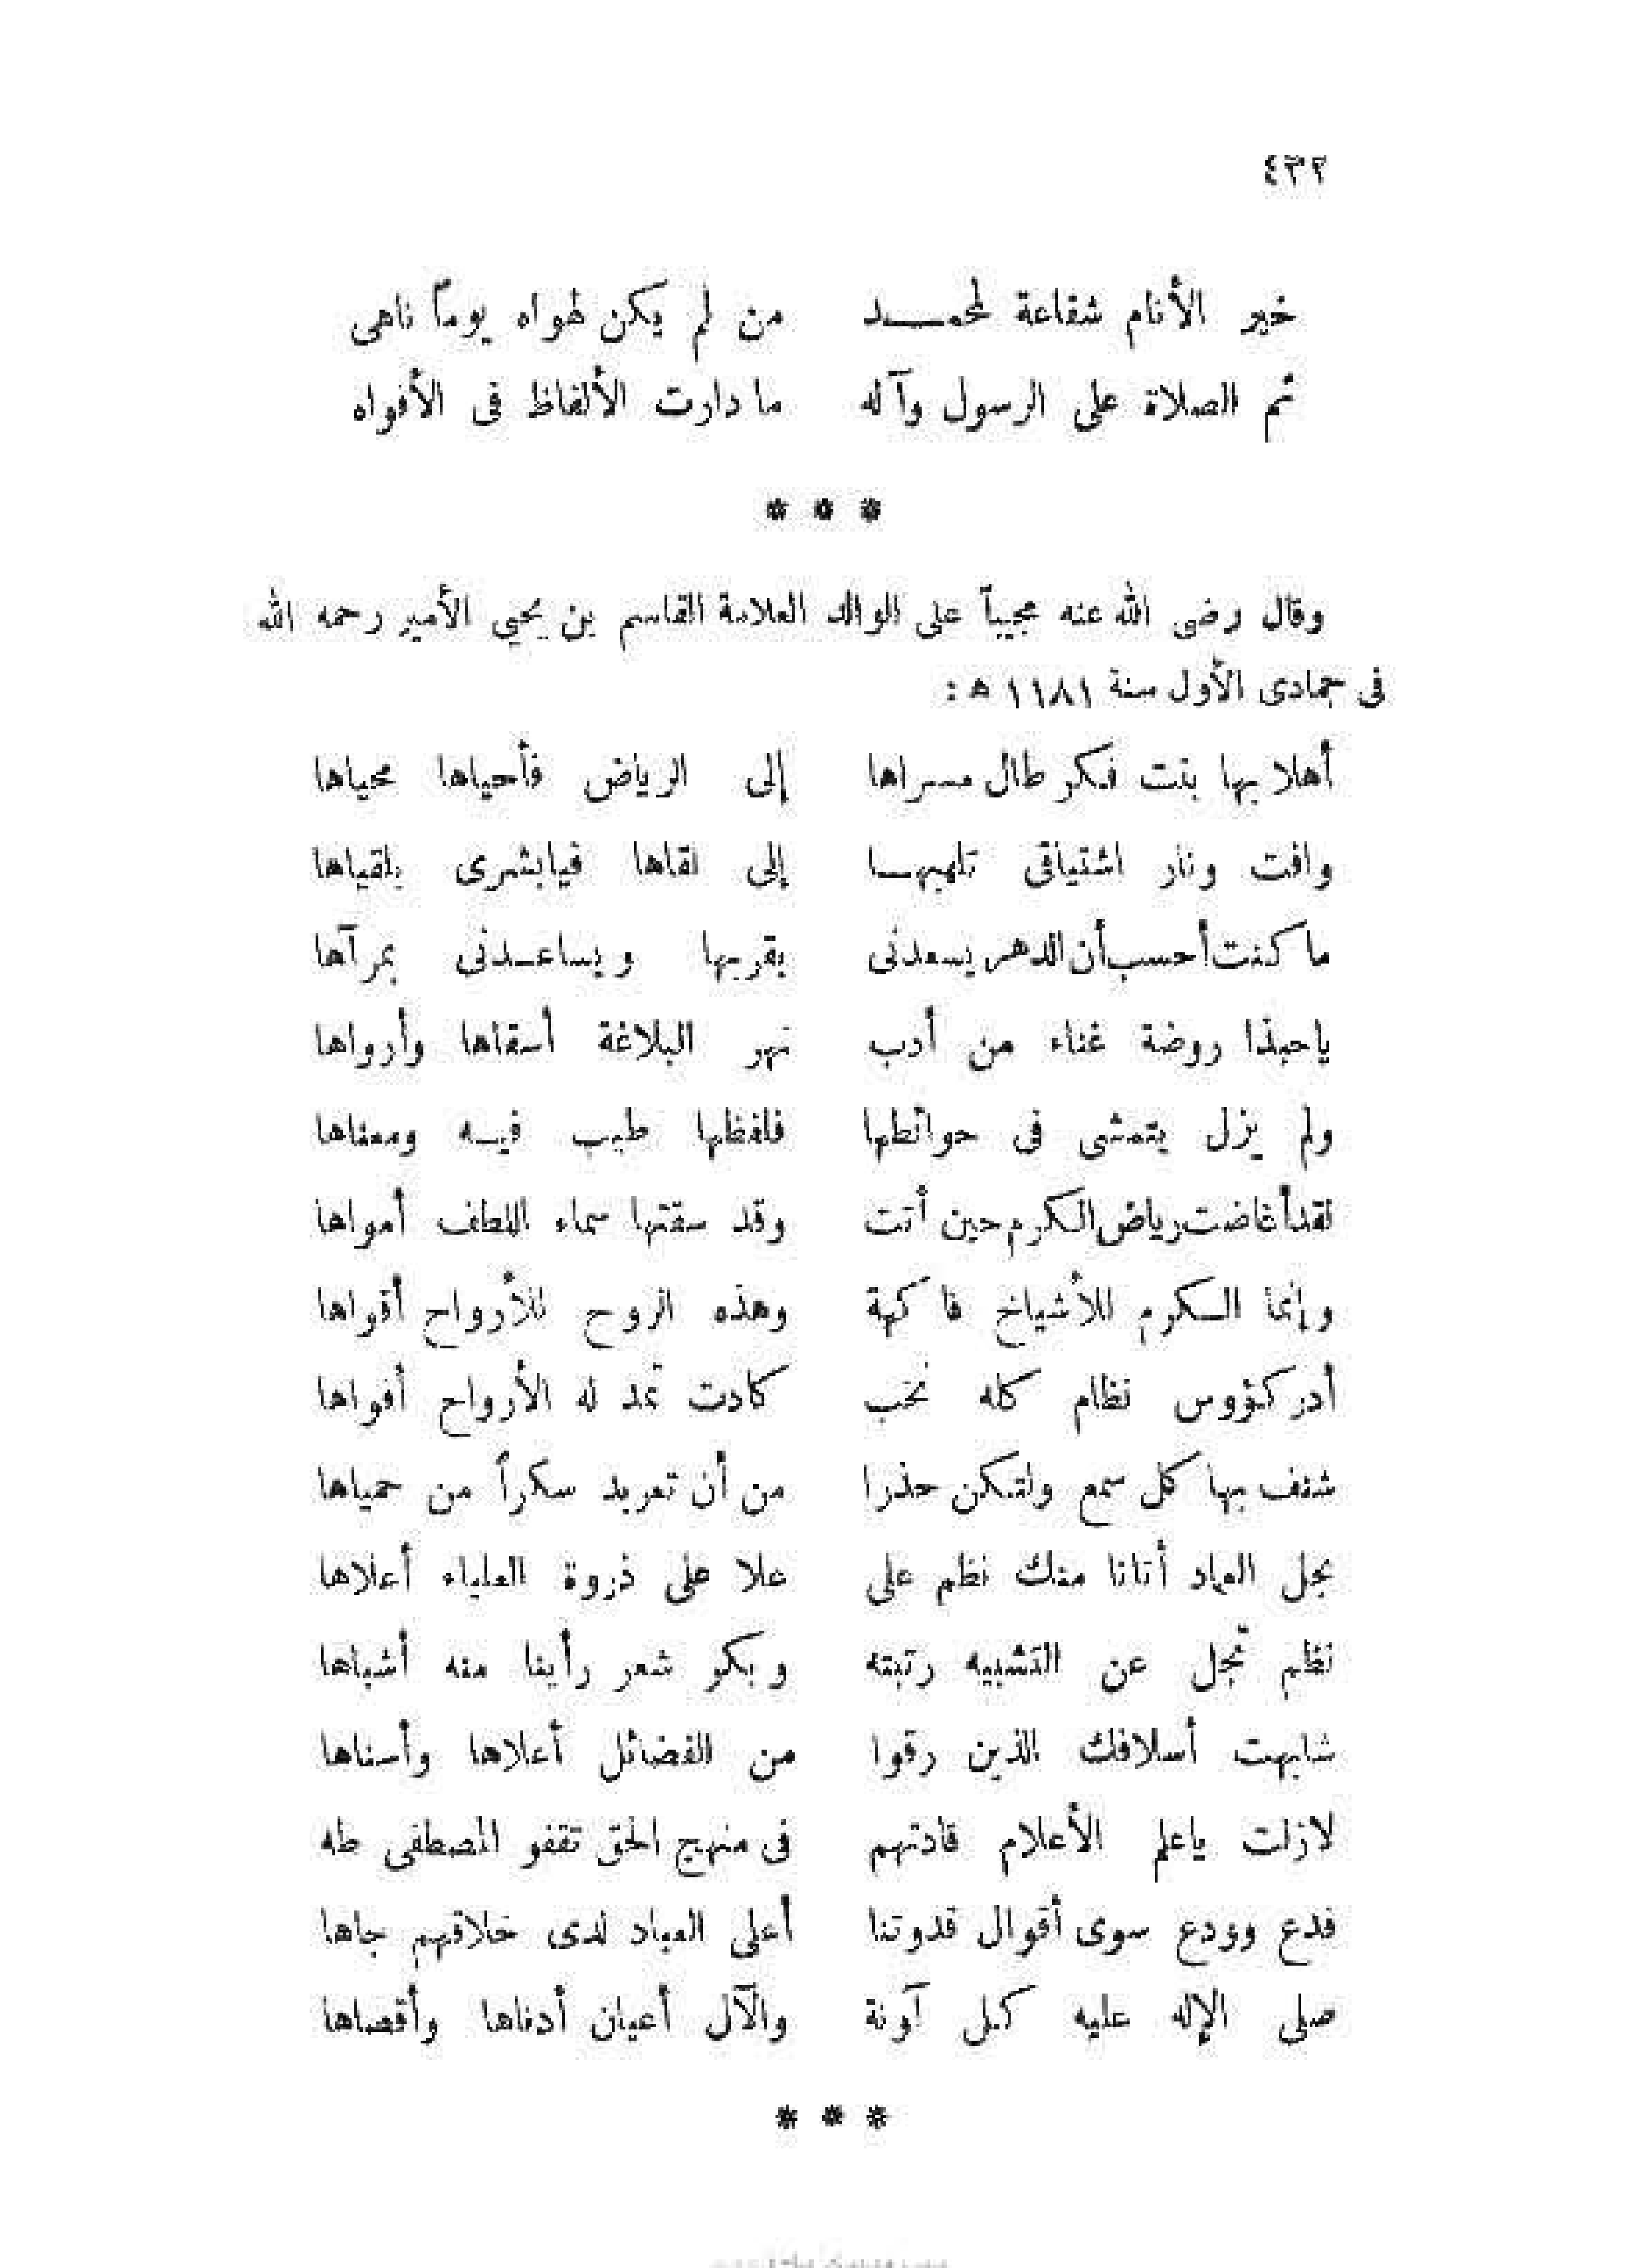 ٤٣٢
خير الأنام شفاعة لمحمد من لم يكن لهواه يوماً ناهى
ثم الصلاة على الرسول وآله ما دارت الألفاظ فى الأفواه
* * *
وقال رضى الله عنه مجيباً على الوالد العلامة القاسم بن يحيى الأمير رحمه الله
فى جمادى الأول سنة ١١٨١ ه :
أهلا بها بنت فكر طال مسراها إلى الرياض فأحياها محياها
وافت ونار اشتياقى تلهبها إلى لقاها فيابشرى بلقياها
ما كنت أحسب أن الدهر يسعدنى بقربها ويساعدنى بمرآها
ياحبذا روضة غناء من أدب نهر البلاغة أسقاها وأرواها
ولم يزل يتمشى فى حوائطها فلفظها طيب فيه ومعناها
لقد أغاضت رياض الكرم حين أتت وقد سقتها سماء اللطف أمواها
وإنما الكرم للأشياخ فاكهة وهذه الروح للأرواح أقواها
أدر كئوس نظام كله نخب كادت تمد له الأرواح أفواها
شنف بها كل سمع ولتكن حذرا من أن تعربد سكراً من حمياها
نجل العماد أتانا منك نظم على علا على ذروة العلياء أعلاها
نظم تجل عن التشبيه رتبته وبكر شعر رأينا منه أشباها
شابهت أسلافك الذين رقوا من الفضائل أعلاها وأسناها
لازلت ياعلم الأعلام قادتهم فى منهج الحق تقفو المصطفى طه
فدع وودع سوى أقوال قدوتنا أعلى العباد لدى خلاقهم جاها
صلى الإله عليه كل آونة والآل أعيان أدناها وأقصاها
* * *